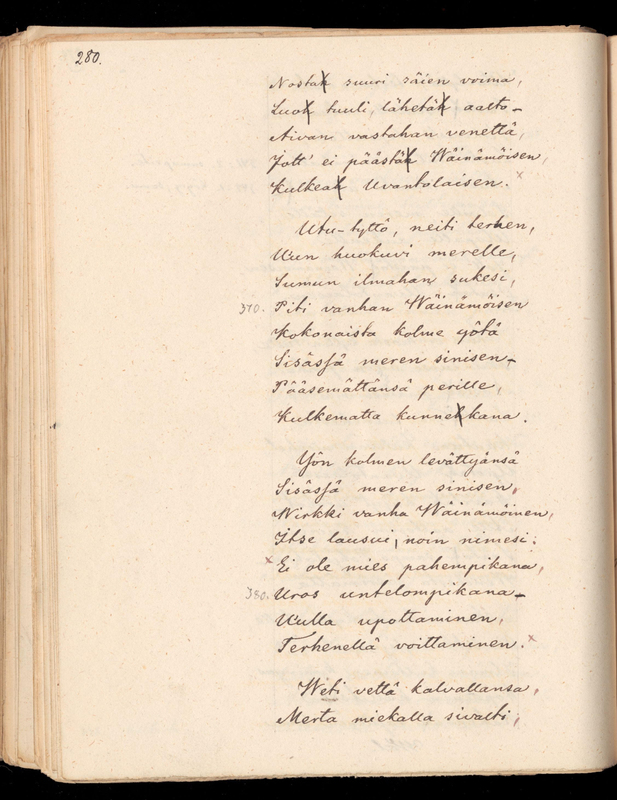 280.
Nostak suuri säien voima,
Luok tuuli, lähetäk aalto
Aivan vastahan venettä,
Jott' ei päästäk Wäinämöisen,
Kulkeak Uvantolaisen. ×
Utu-tyttö, neiti terhen,
Uun huokuvi merelle,
Sumun ilmahan sukesi,
370. Piti vanhan Wäinämöisen
Kokonaista kolme yötä
Sisässä meren sinisen
Pääsemättänsä perille,
Kulkematta kunnekkana.
Yön kolmen levättyänsä
Sisässä meren sinisen,
Wirkki vanha Wäinämöinen,
Itse lausui, noin nimesi:
× Ei ole mies pahempikana,
380. Uros untelompikana
Uulla upottaminen,
Terhenellä voittaminen. ×
Weti vettä kalvallansa,
Merta miekalla sivalti;